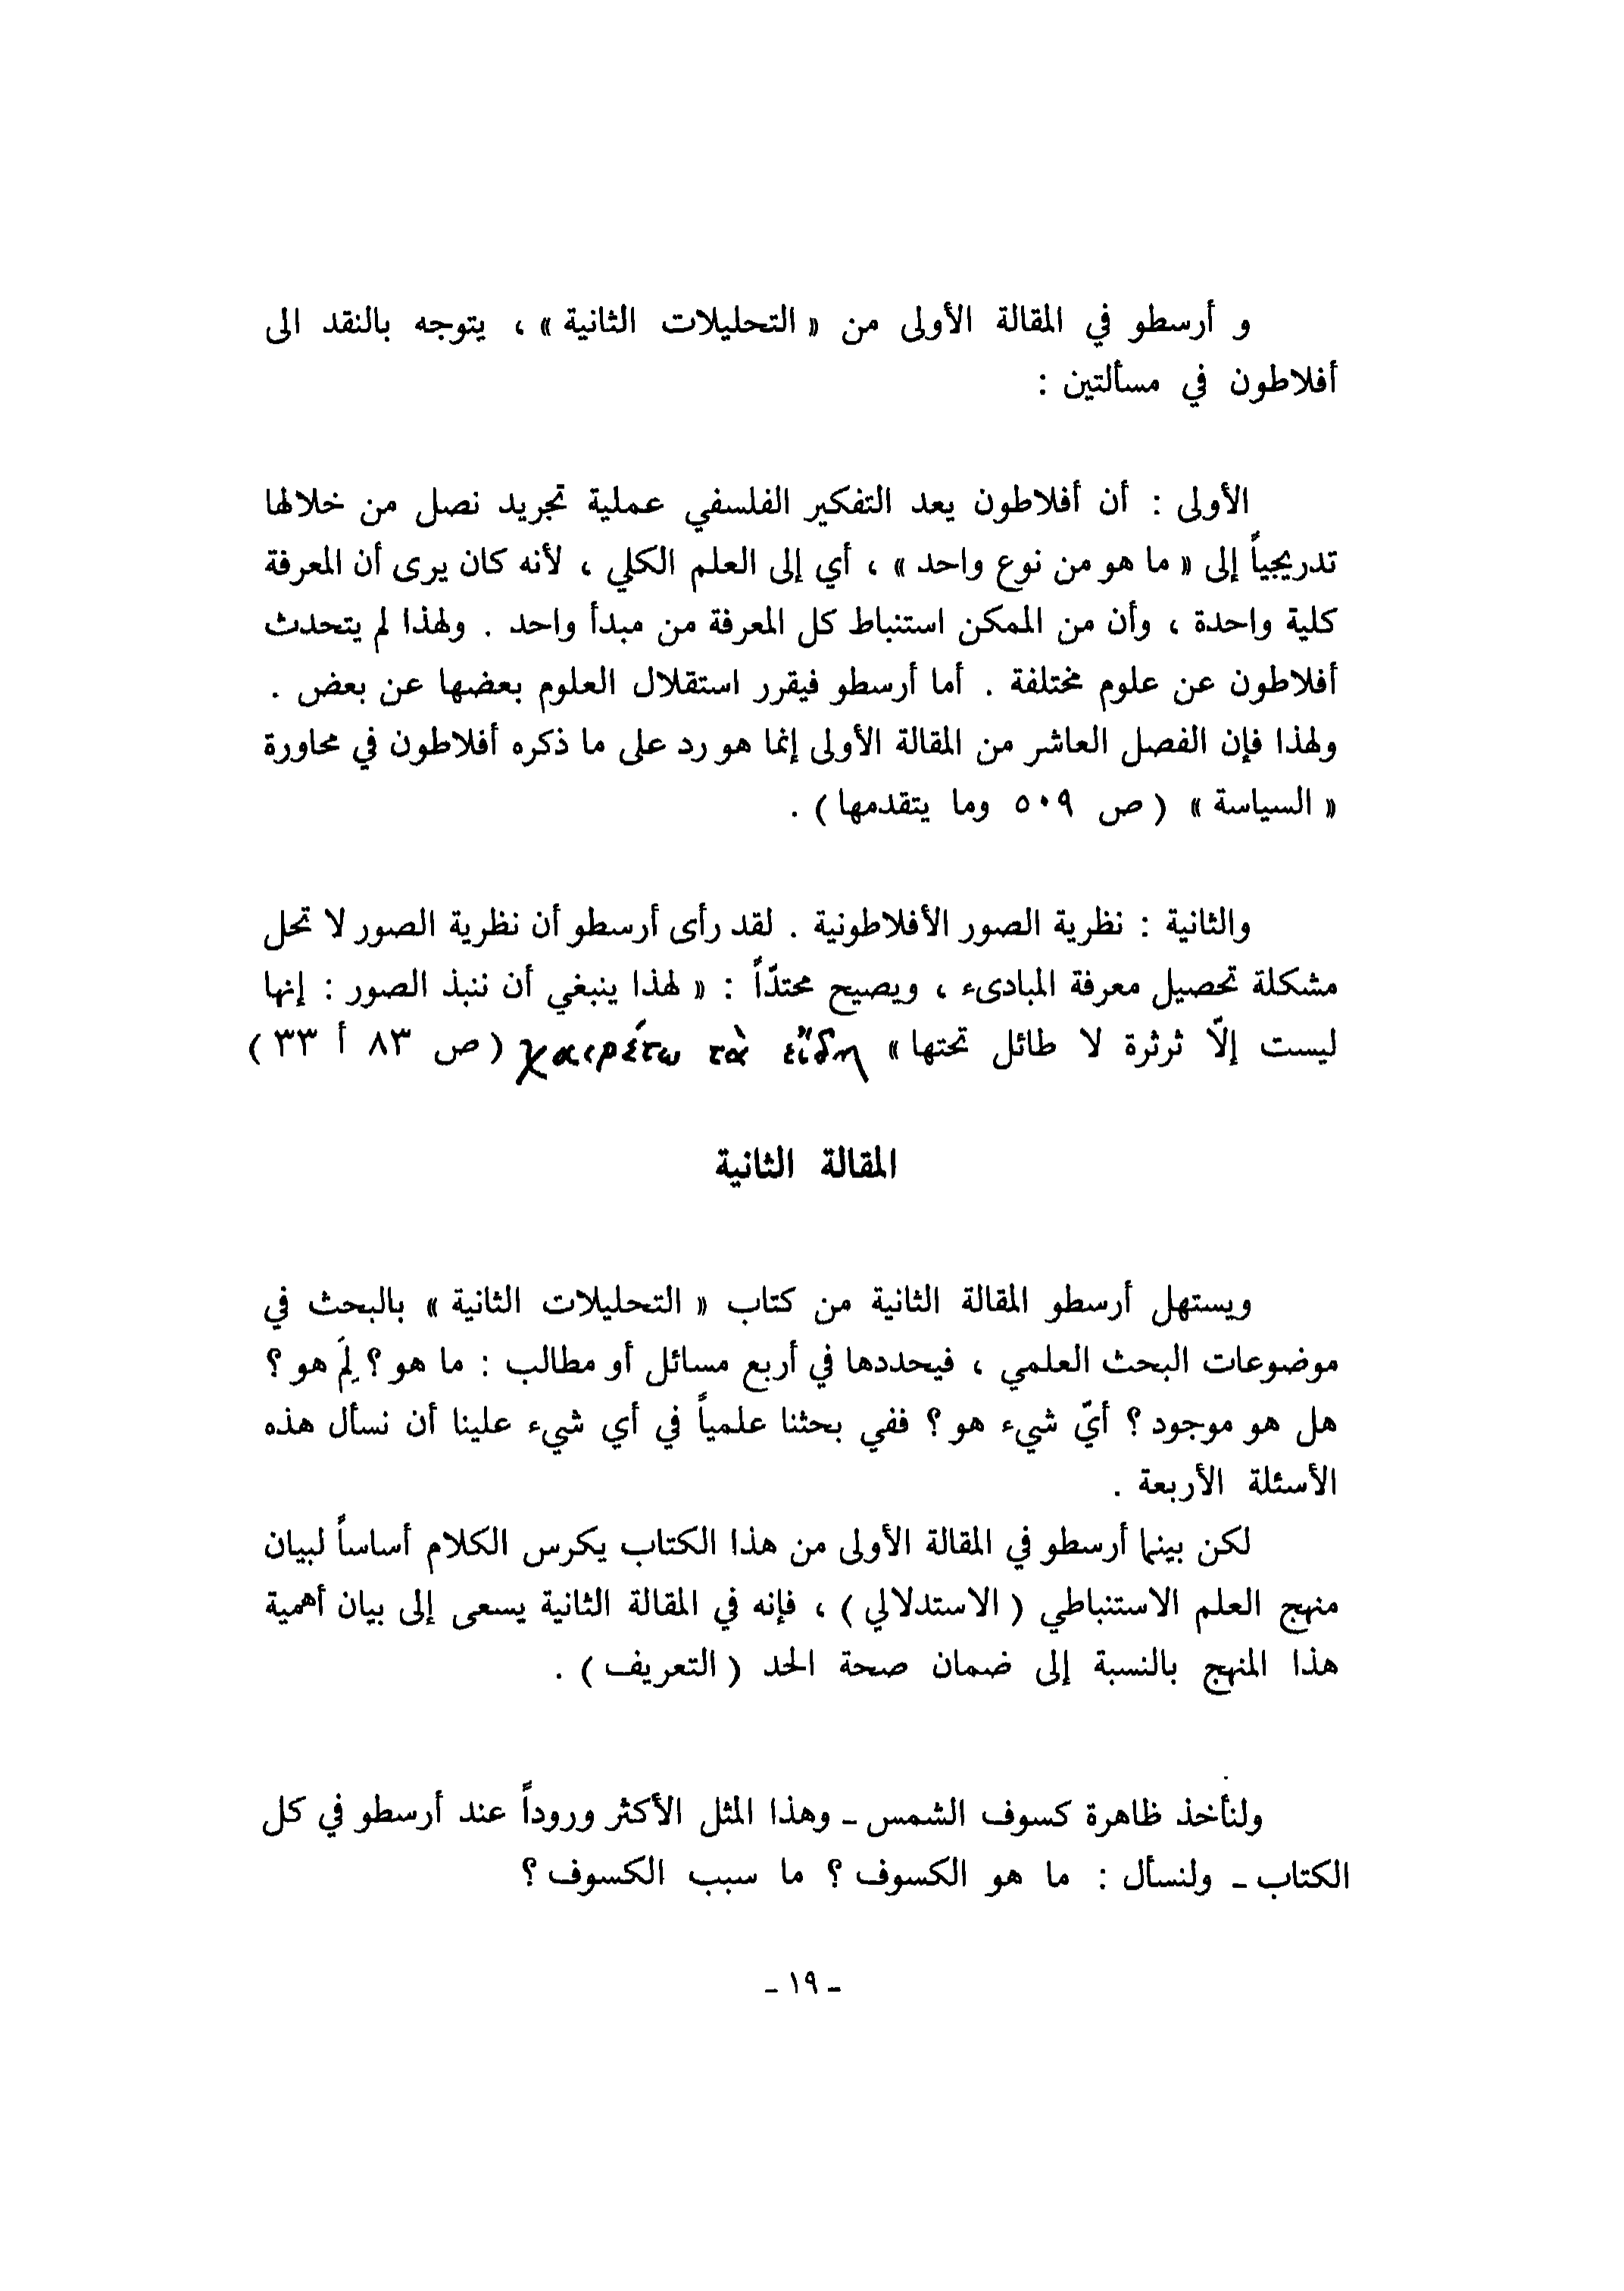 و أرسطو في المقالة الأولى من « التحليلات الثانية » ، يتوجه بالنقد الى
أفلاطون في مسألتين :
الأولى : أن أفلاطون يعد التفكير الفلسفي عملية تجريد نصل من خلالها
تدريجياً إلى « ما هو من نوع واحد » ، أي إلى العلم الكلي ، لأنه كان يرى أن المعرفة
كلية واحدة ، وأن من الممكن استنباط كل المعرفة من مبدأ واحد . ولهذا لم يتحدث
أفلاطون عن علوم مختلفة . أما أرسطو فيقرر استقلال العلوم بعضها عن بعض .
ولهذا فإن الفصل العاشر من المقالة الأولى إنما هو رد على ما ذكره أفلاطون في محاورة
« السياسة » ( ص ٥٠٩ وما يتقدمها ) .
والثانية : نظرية الصور الأفلاطونية . لقد رأى أرسطو أن نظرية الصور لا تحل
مشكلة تحصيل معرفة المبادىء ، ويصيح محتدّاً : « لهذا ينبغي أن ننبذ الصور : إنها
ليست إلّا ثرثرة لا طائل تحتها » χαιρέτω τὰ εἴδη ( ص ٨٣ أ ٣٣ )
المقالة الثانية
ويستهل أرسطو المقالة الثانية من كتاب « التحليلات الثانية » بالبحث في
موضوعات البحث العلمي ، فيحددها في أربع مسائل أو مطالب : ما هو ؟ لِمَ هو ؟
هل هو موجود ؟ أيّ شيء هو ؟ ففي بحثنا علمياً في أي شيء علينا أن نسأل هذه
الأسئلة الأربعة .
لكن بينما أرسطو في المقالة الأولى من هذا الكتاب يكرس الكلام أساساً لبيان
منهج العلم الاستنباطي ( الاستدلالي ) ، فإنه في المقالة الثانية يسعى إلى بيان أهمية
هذا المنهج بالنسبة إلى ضمان صحة الحد ( التعريف ) .
ولنأخذ ظاهرة كسوف الشمس ـ وهذا المثل الأكثر وروداً عند أرسطو في كل
الكتاب ـ ولنسأل : ما هو الكسوف ؟ ما سبب الكسوف ؟
ـ ١٩ ـ